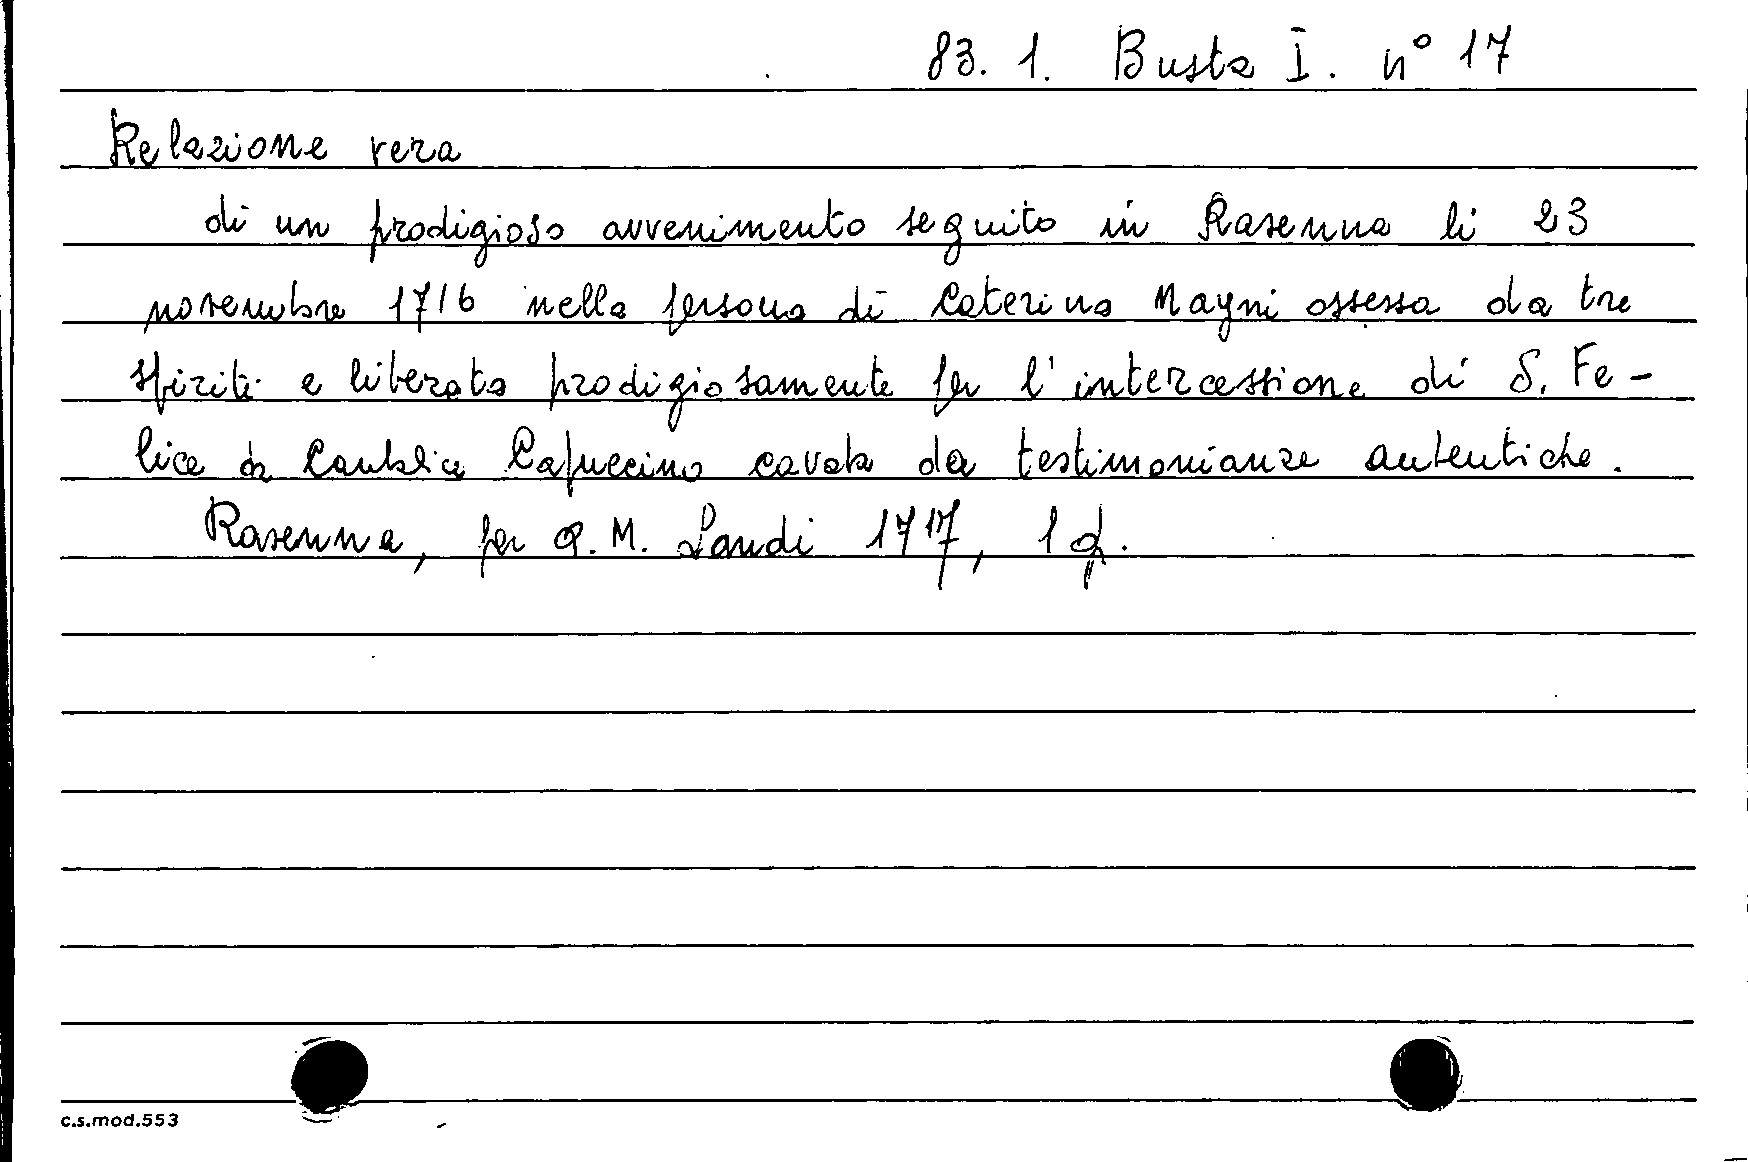 83. 1. Busta I. n° 17
Relazione vera
di un prodigioso avvenimento seguito in Ravenna li 23
novembre 1716 nella persona di Caterina Magni ossessa da tre
spiriti e liberata prodigiosamente per l'intercessione di S. Fe-
lice da Cantalice Capuccino cavata da testimonianze autentiche.
Ravenna, per A. M. Landi 1717, 1 f.
c.s.mod.553